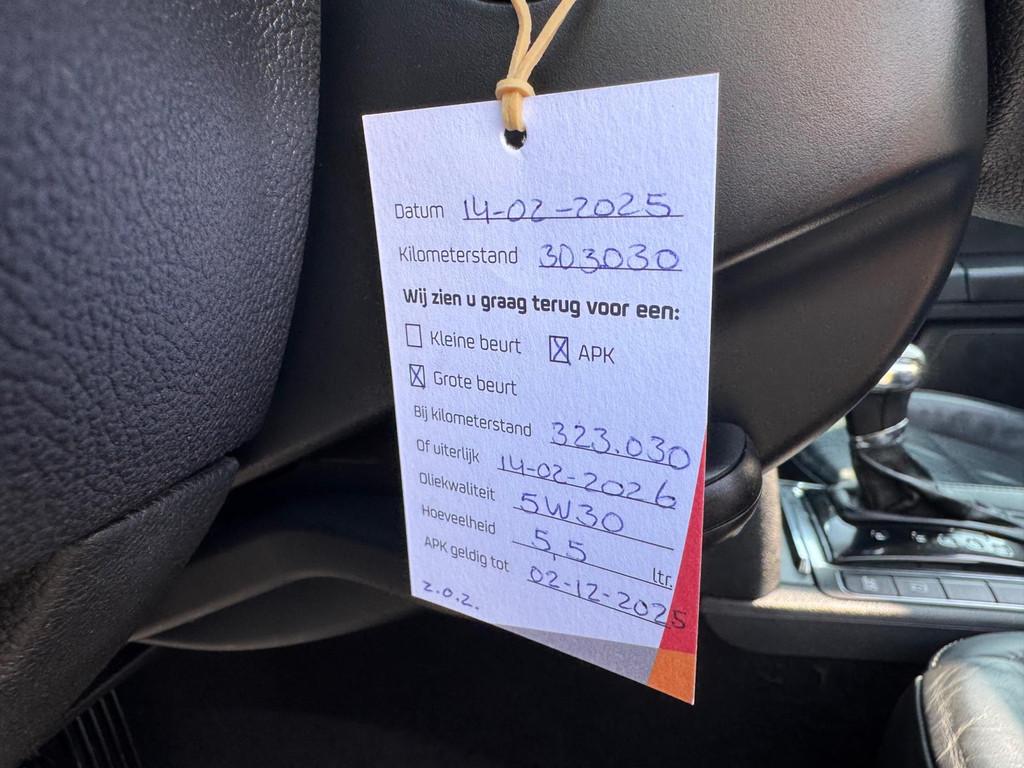 Datum 14-02-2025
Kilometerstand 303030
Wij zien u graag terug voor een:
Kleine beurt APK
Grote beurt
Bij kilometerstand 323.030
Of uiterlijk 14-02-2026
Oliekwaliteit 5W30
Hoeveelheid 5,5 ltr.
APK geldig tot 02-12-2025
z.o.z.